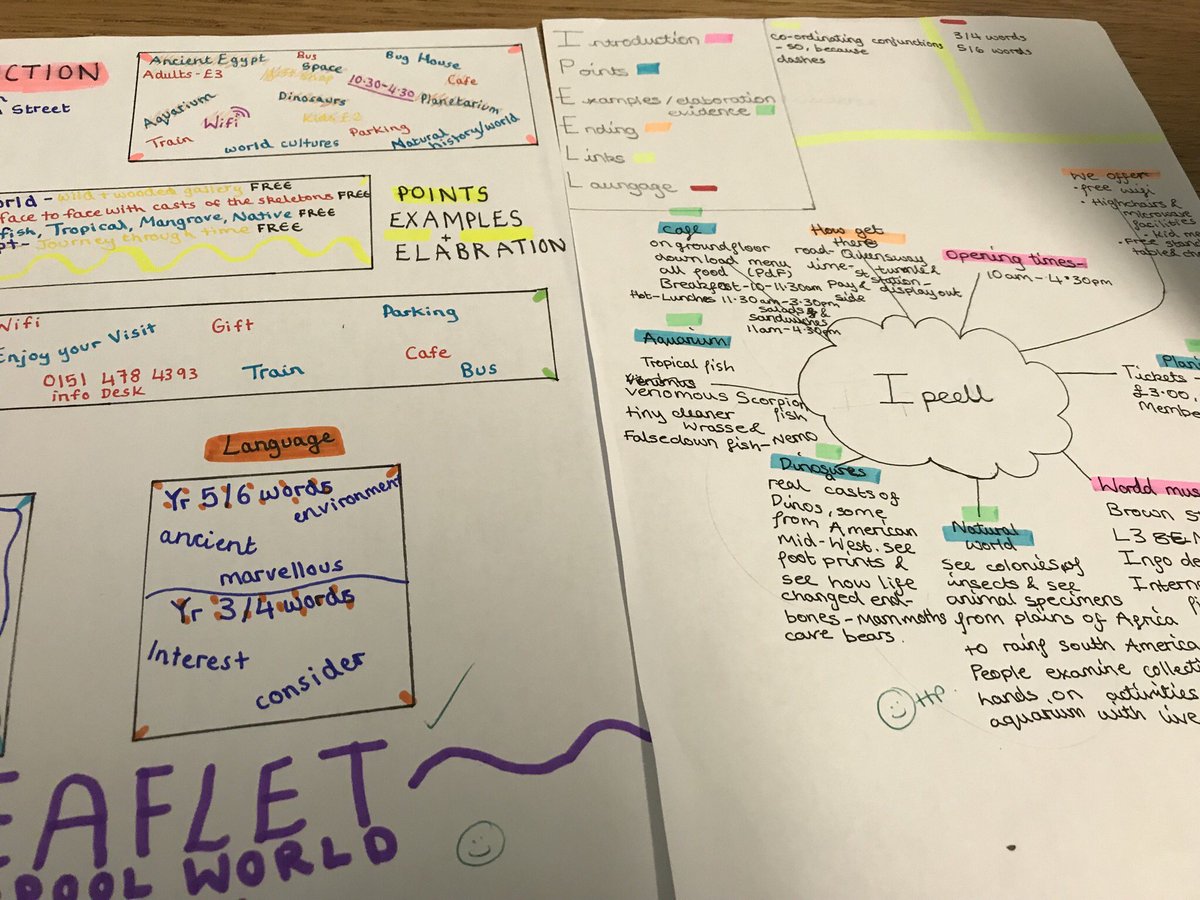 CTION
Street
Ancient Egypt
Bus
Bug House
Adults - £3
Space
10:30-4:30
Cafe
Aquatium
Dinosaurs
Planetarium
Wifi
Kids £2
Train
world cultures
Parking
Natural
history/world
orld - wild + wooded gallery FREE
face to face with casts of the skeletons FREE
fish, Tropical, Mangrove, Native FREE
pt - Journey through time FREE
POINTS
EXAMPLES
+
ELABRATION
Wifi
Gift
Parking
Enjoy your Visit
Cafe
0151 478 4393
info Desk
Train
Bus
Language
Yr 5/6 words
environment
ancient
marvellous
Yr 3/4 words
Interest
consider
EAFLET
POOL WORLD
Introduction
Points
Examples/elaboration
evidence
Ending
Links
Laungage
co-ordinating conjunctions
- so, because
dashes
3/4 words
5/6 words
Cafe
on ground floor
download menu
all food (PdF)
Breakfast-10-11:30am
Hot-Lunches 11.30am-3:30pm
salads &
sandwiches
11am-4.30pm
How get
there
road- Queensway
lime- st tunnel &
station-
Pay & display out
side
Opening times-
10am-4:30pm
We offer
- free wifi
- Highchairs &
microwave
facilities
- kid me
- Free stand
table & ch
Aquarium
Tropical fish
venomous Scorpion
fish
tiny cleaner
wrasse &
False down fish-Nemo
I peell
Plani
Tickets
£3.00,
Member
Dinosures
real casts of
Dinos, some
from American
Mid-West. see
foot prints &
see how life
changed end-
bones-Mammoths
cave bears.
Natural
world
see colonies of
insects & see
animal specimens
from plains of Africa
to rainf south America
People examine collecti
hands on activities
aquarium with live
World mus
Brown st
L3 8EN
Ingo de
Intern
HP